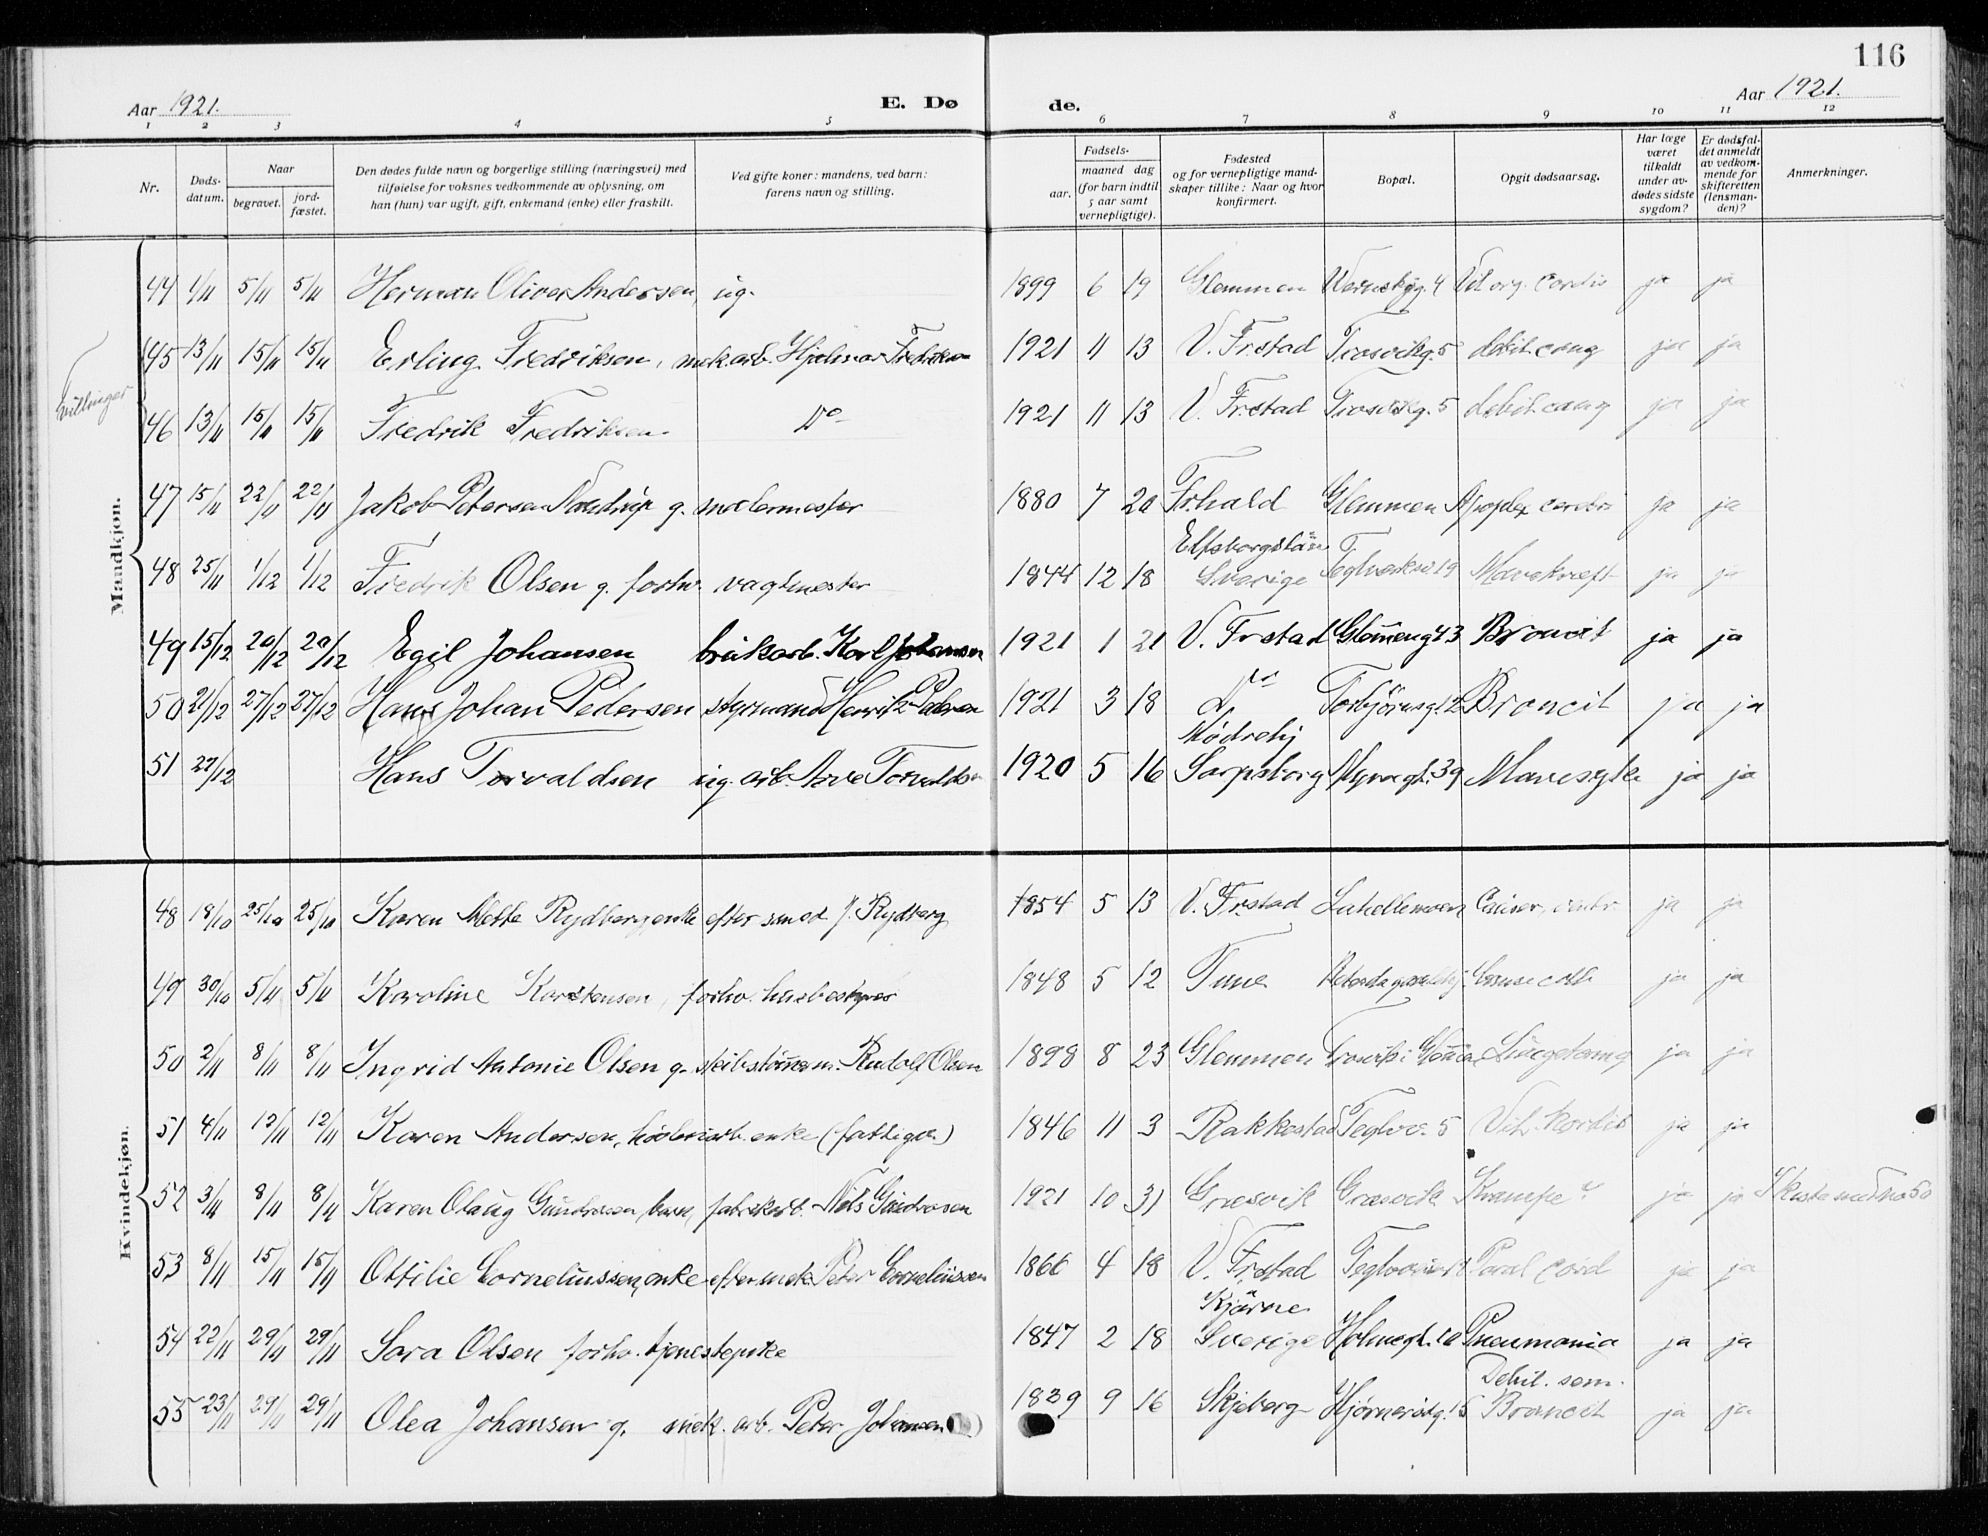 116
Aar 1921. E. Dø de. Aar 1921.
1 2 3 4 5 6 7 8 9 10 11 12
Nr. Døds-datum. Naar begravet. jord-fæstet. Den dødes fulde navn og borgerlige stilling (næringsvei) med tilføielse for voksnes vedkommende av oplysning, om han (hun) var ugift, gift, enkemand (enke) eller fraskilt. Ved gifte koner: mandens, ved barn: farens navn og stilling. Fødsels- aar. maaned dag (for barn indtil 5 aar samt vernepligtige). Fødested og for vernepligtige mandskaper tillike: Naar og hvor konfirmert. Bopæl. Opgit dødsaarsag. Har læge været tilkaldt under avdødes sidste sygdom? Er dødsfaldet anmeldt av vedkommende for skifteretten (lensmanden)? Anmerkninger.
Mandkjøn.
44 1/11 5/11 5/11 Herman Oliver Andersen, ug. 1899 6 19 Glemmen 4 Vit. org. Cordis ja ja
Tvillinger
45 13/11 15/11 15/11 Erling Fredriksen, mek. arb. Hjalmar Fredriksen 1921 11 13 V. Frstad Trosvikg. 5 debil. cong ja ja
46 13/11 15/11 15/11 Fredrik Fredriksen Do 1921 11 13 V. Frstad Trosvikg. 5 debil. cong ja ja
47 15/11 22/11 22/11 Jakob Petersen g. malermester 1880 7 20 Frhald Glemmen Apoplex cerebri ja ja
48 25/11 1/12 1/12 Fredrik Olsen g. forhv. vagtmester 1844 12 18 Elfsborgslän Sverige 19 Mavekræft ja ja
49 15/12 20/12 20/12 Egil Johansen brukarb. Karl Johansen 1921 1 21 V. Frstad Glom̄eng. 43 Broncit ja ja
50 21/12 27/12 27/12 Hans Johan Pedersen styrmand Henrik Pedersen 1921 3 18 Do Torbjörnsg. 12 Broncit ja ja
51 27/12 Hans Torvaldsen ug. arb. Arve Torvaldsen 1920 5 16 Mödrehj Sarpsborg 39 Mavesyke ja ja
Kvindekjøn.
48 18/10 25/10 25/10 Karen Mette Rydberg, enke efter smed J. Rydberg 1854 5 13 V. Frstad Lahellemoen Cancer. ventr ja ja
49 30/10 5/11 5/11 Karoline Karstensen, forhv. husbestyrer 1848 5 12 Tune ja ja
50 2/11 8/11 8/11 Ingrid Antonie Olsen g. skibstöm̄erm. Rudolf Olsen 1898 8 23 Glemmen Trosvik i Glem̄en ja ja
51 4/11 12/11 12/11 Karen Andersen, enke (fattigv.) 1846 11 3 Rakkestad Teglvv. 5 Vit. Kordis ja ja
52 3/11 8/11 8/11 Karen Olaug Gundersen, barn, fabrikarb. Nils Gundersen 1921 10 31 Gresvik Gresvik Krampe ja ja I kiste med no 50
53 8/11 15/11 15/11 Ottilie Corneliussen, enke efter mek Peter Corneliussen 1866 4 18 V. Frstad Paral cord ja ja
54 22/11 29/11 29/11 Sara Olsen forhv. tjenestepike 1847 2 18 Kjärne Sverige Holmegt. 10 Pneumonia ja ja
55 23/11 29/11 29/11 Olea Johansen g. mek. arb. Peter Johansen 1839 9 16 Skjeberg 5 Debil. sen. Broncit ja ja